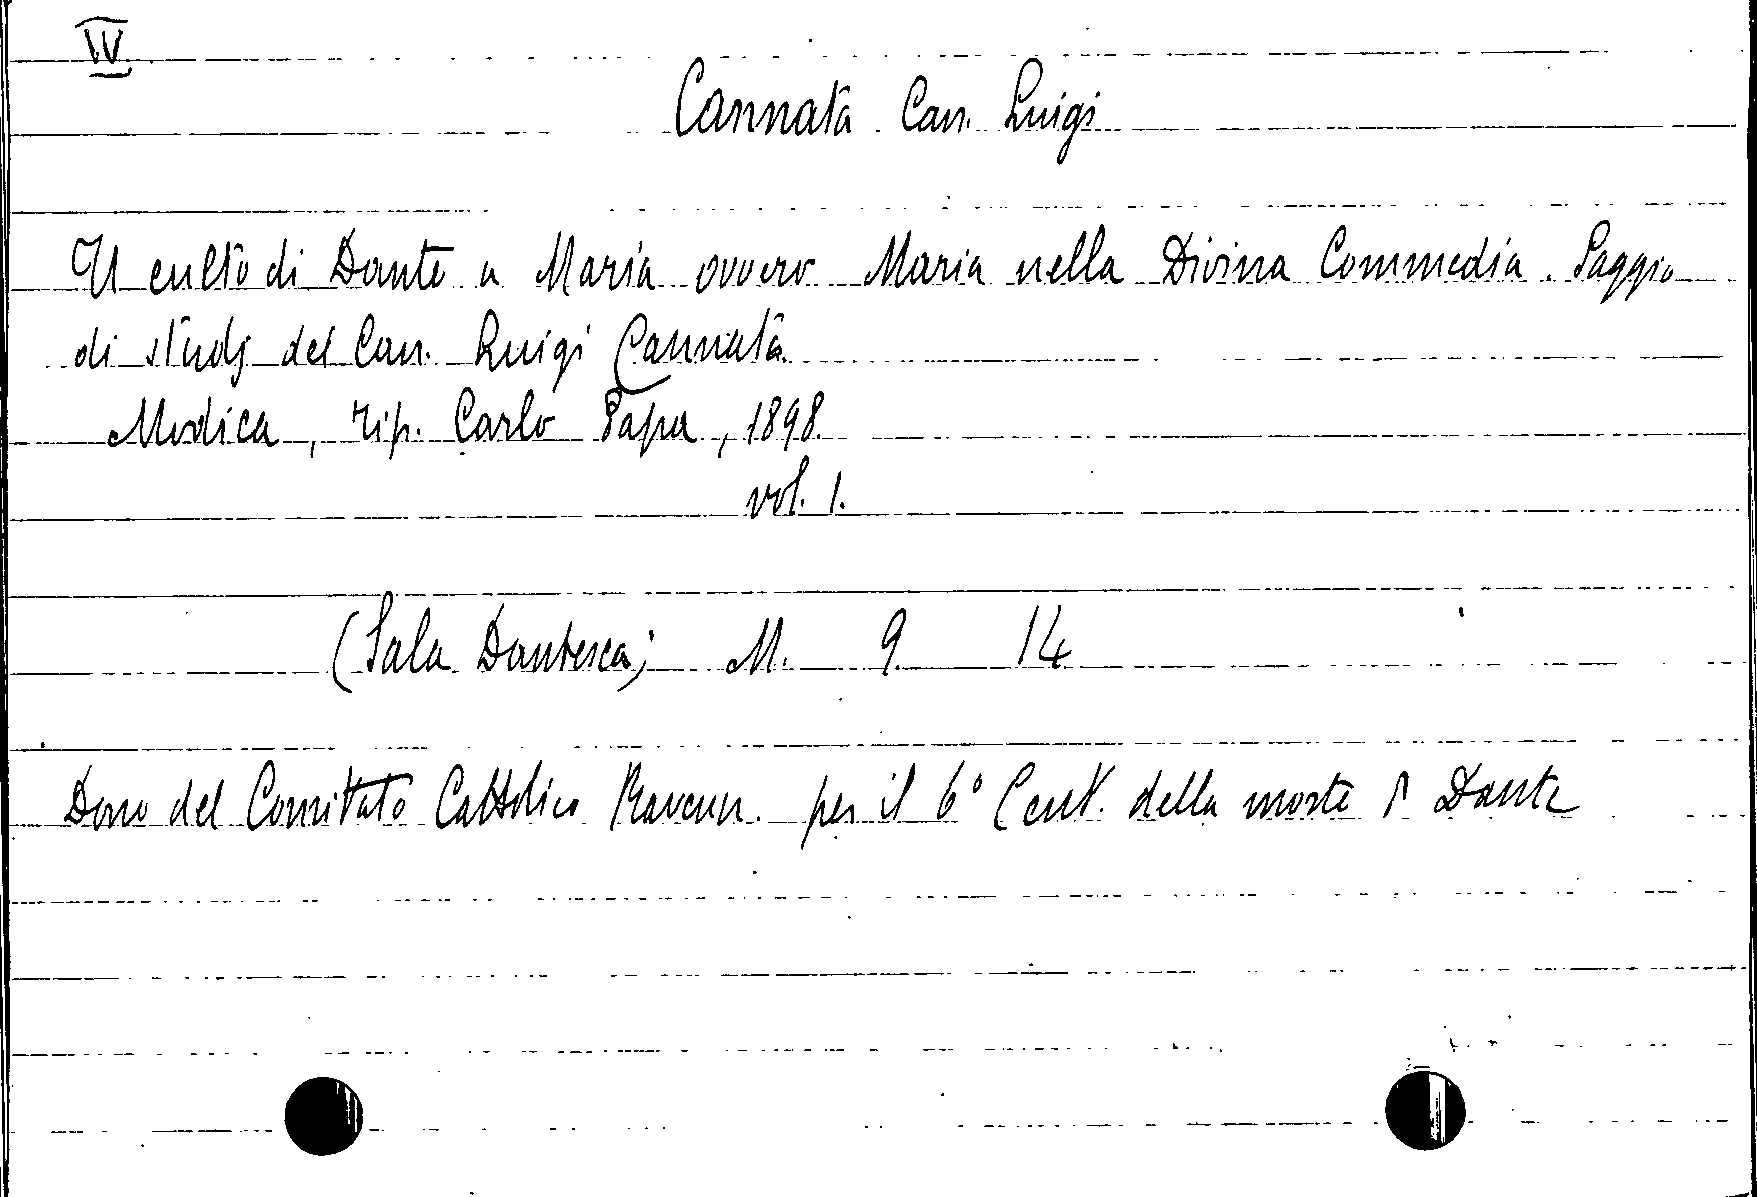 IV
Cannata Can. Luigi
Il culto di Dante a Maria ovvero Maria nella Divina Commedia. Saggio
di studj del Can. Luigi Cannata
Modica, tip. Carlo Papa, 1898.
vol. 1.
(Sala Dantesca; M. 9. 14
Dono del Comitato Cattolico Ravenn. per il 6° Cent. della morte Dante